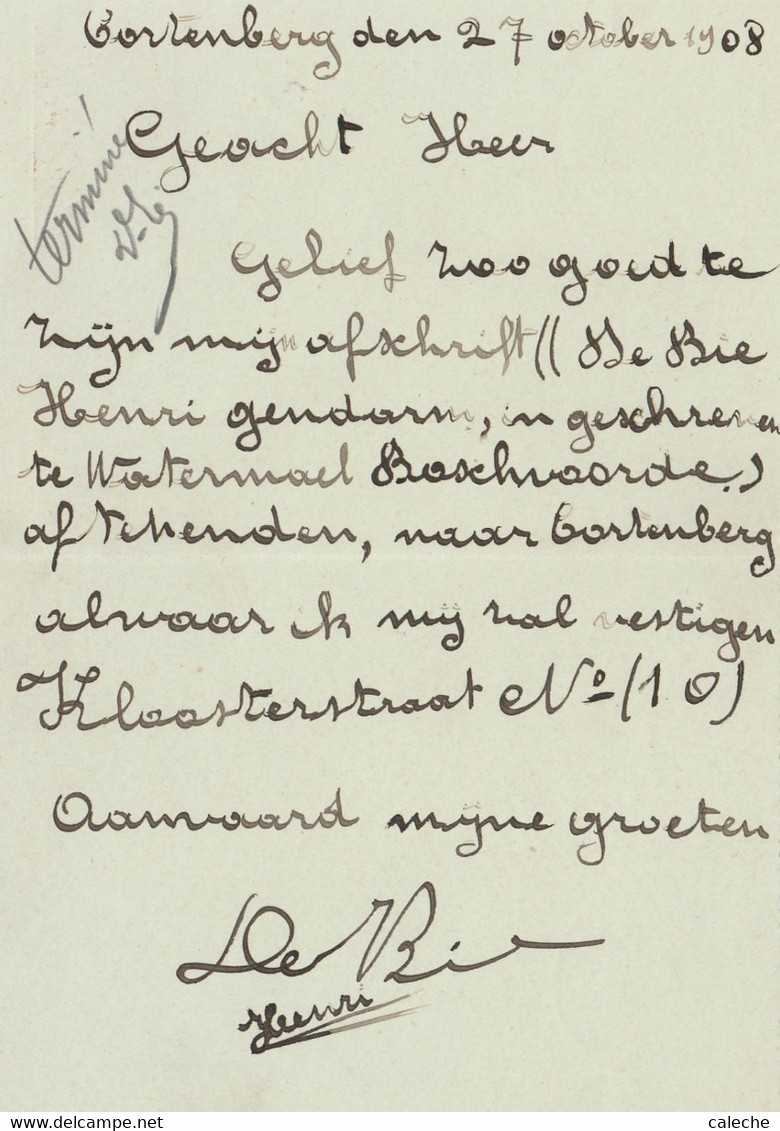 Cortenberg den 27 october 1908
terminé!
Geacht Heer
Gelief zoo goed te
zijn mijn afschrift (( De Bie
Henri gendarm, in geschreven
te Watermael Boschvoorde.)
af te zenden, naar Cortenberg
alwaar ik mij zal vestigen
Kloosterstraat No (10)
Aanvaard mijne groeten
De Bie
Henri
www.delcampe.net
caleche